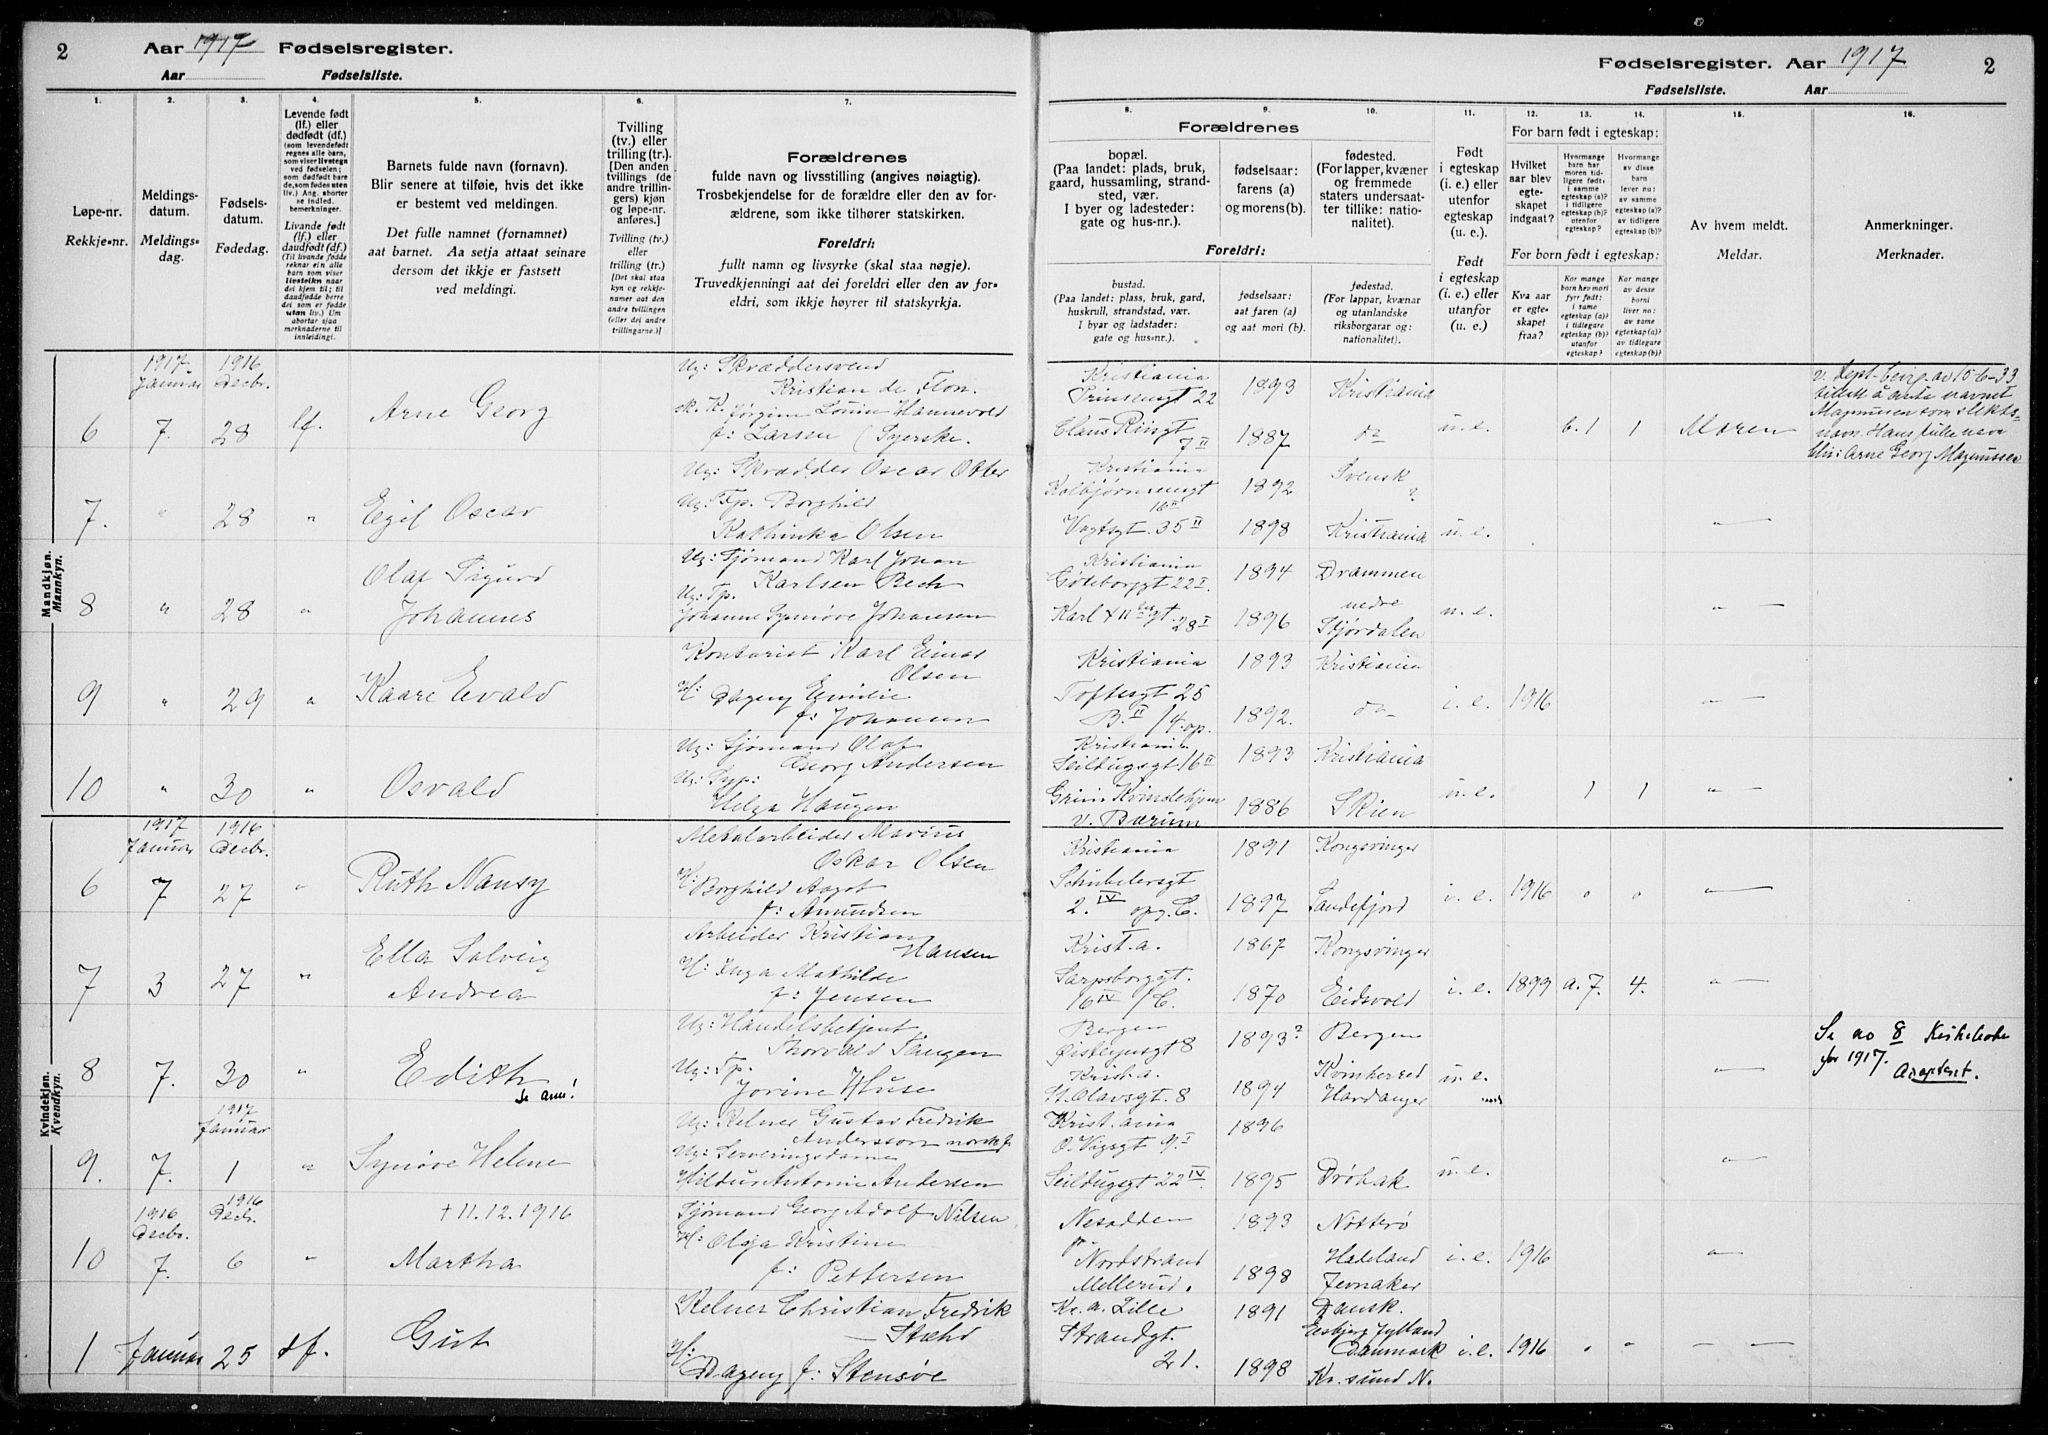 2
Aar 1917 Fødselsregister.
Aar Fødselsliste.
Fødselsregister. Aar 1917
2
Fødselsliste. Aar
1. 2. 3. 4. 5. 6. 7.
Løpe-nr.
Rekkje-nr.
Meldings-
datum.
Meldings-
dag.
Fødsels-
datum.
Fødedag.
Levende født
(lf.) eller
dødfødt (df.)
Barnets fulde navn (fornavn).
Blir senere at tilføie, hvis det ikke
er bestemt ved meldingen.
Det fulle namnet (fornamnet)
aat barnet. Aa setja attaat seinare
dersom det ikkje er fastsett
ved meldingi.
Tvilling
(tv.) eller
trilling (tr.).
[Den anden
tvillings (de
andre trillin-
gers) kjøn
og løpe-nr.
anføres.]
Forældrenes
fulde navn og livsstilling (angives nøiagtig).
Trosbekjendelse for de forældre eller den av for-
ældrene, som ikke tilhører statskirken.
Foreldri:
fullt namn og livsyrke (skal staa nøgje).
Truvedkjenningi aat dei foreldri eller den av for-
eldri, som ikkje høyrer til statskyrkja.
8. 9. 10. 11. 12. 13. 14. 15. 16.
Forældrenes
bopæl.
(Paa landet: plads, bruk,
gaard, hussamling, strand-
sted, vær.
I byer og ladesteder:
gate og hus-nr.).
fødselsaar:
farens (a)
og morens (b).
fødested.
(For lapper, kvæner
og fremmede
staters undersaat-
ter tillike: natio-
nalitet).
Foreldri:
bustad.
(Paa landet: plass, bruk, gard,
huskrull, strandstad, vær.
I byar og ladstader:
gate og hus-nr.).
fødselsaar:
aat faren (a)
og aat mori (b).
fødestad.
(For lappar, kvænar
og utanlandske
riksborgarar og:
nationalitet).
Født
i egteskap
(i. e.) eller
utenfor
egteskap
(u. e.).
Født
i egteskap
(i. e.) eller
utanfor
(u. e.).
For barn født i egteskap:
Hvilket
aar blev
egte-
skapet
indgaat?
For born født i egteskap:
Kva aar
er egte-
skapet
fraa?
Av hvem meldt.
Meldar.
Anmerkninger.
Merknader.
Mandkjøn.
Mannkyn.
Kvindekjøn.
Kvendkyn.
1917 Januar 1916 Decbr.
6 7. 28 lf. Arne Georg
Ug: Skræddersvend
Kristian de Flon.
sk. K. Jørgine Lovise Hannevold
f: Larsen (Syerske.
Kristiania
Prinsensgt 22 1893 Kristiania
Claus Riisgt
7 II 1887 do u. e. b. 1 1 Moren
v. dept. bevig. av 15-6-33
tillatt å anta navnet
Magnussen som slekts-
navn. Hans fulle navn
blir: Arne Georg Magnussen
7. " 28 " Egil Oscar
Ug: Skrædder Oscar Otter
Ug: Tp. Borghild
Kathinka Olsen
Kristiania
Kolbjørnsensgt 1892 Svensk ?
16 II
Vogtsgt. 35 II 1898 Kristiania u. e. "
8 " 28 " Olaf Sigurd
Johannes
Ug: Sjømand Karl Johan
Karlsen Bech
Ug: Tp.
Johanne Synnøve Johansen
Kristiania
Gøteborggt 22 I 1894 Drammen
Karl XII's gt. 28 I 1896 nedre
Stjørdalen u. e. "
9 " 29 " Kaare Evald
Kontorist Karl Einar
Olsen
H: Dagny Emilie
f: Johansen
Kristiania 1893 Kristiania
Toftesgt 25
B. II /4. op. 1892. do i. e. 1916 "
10 " 30 " Osvald
Ug: Sjømand Olaf
Georg Andersen
Ug: Syp:
Helga Haugen
Kristiania
Seildugsgt 16 II 1893 Kristiania
Grini Kvindehjem
v. Bærum 1886 Skien u. e. 1 1 "
1917 Januar 1916 Decbr.
6 7 27 " Ruth Nansy
Metalarbeider Marius
Oskar Olsen
H: Borghild Aagot
f: Amundsen
Kristiania 1891 Kongsvinger
Schübelersgt
2. IV opg. C. 1897 Sandefjord i. e. 1916 0 0 "
7 3 27 " Ella Solveig
Andrea
Arbeider Kristian
Hansen
H: Inga Mathilde
f: Jensen
Krist.a. 1867 Kongsvinger
Sarpsborggt.
16 IV /C. 1870 Eidsvold i. e. 1899 a. 7. 4. "
8 7. 30 " Edith
Se anm!
Ug: Handelsbetjent
Thorvald Taugen
Ug: Tp.
Jorine Huse
Bergen
8 1893? Bergen
Krist.a.
St. Olavsgt. 8 1894 Kvinherred
Hardanger u. e. "
Se no 8 Kirkeboken
for 1917. Adoptert.
1917 Januar
9. 7. 1 " Synøve Helene
Ug: Kelner Gustav Fredrik
Andersson norsk
Ug: Serveringsdame
Hildur Antonie Andersen
Krist.ania 1896
O. Vigsgt 9 I
Seildugsgt 22 IV 1895 Drøbak u. e. "
1916 Decbr. 1916 Decbr.
10 7. 6 " † 11.12.1916
Martha
Sjømand Georg Adolf Nilsen
H: Olga Kristine
f: Pettersen
Nesodden 1893 Nøtterø
pr Nordstrand
Mellerud. 1898 Hadeland
Jevnaker i. e. 1916 "
1 Januar 25 df. Gut
Kelner Christian Fredrik
Stæhr
H: Dagny f: Stensøe
Kr. a. Lille 1891 Dansk.
Strandgt.
21. Esbjerg Jylland
Danmark i. e. 1916 0 "
1898 Kr. sund N.